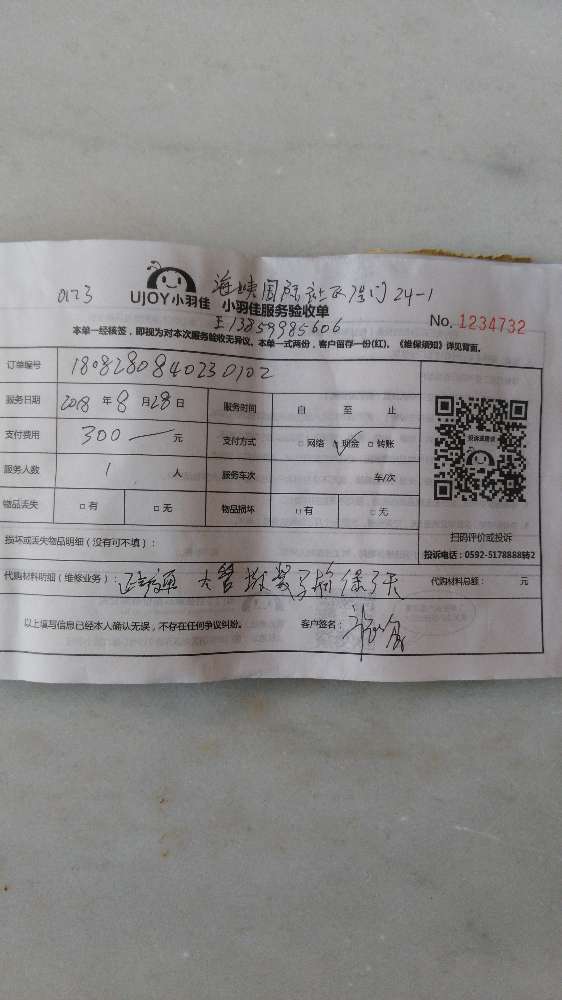 0123
海峡国际社区 24-1
UJOY小羽佳
小羽佳服务验收单
王13859985606
No. 1234732
本单一经核签，即视为对本次服务验收无异议。本单一式两份，客户留存一份(红)，《维保须知》详见背面。
订单编号 1808280840230102
服务日期 2018 年 8 月 28 日 服务时间 自 至 止
支付费用 300 — 元 支付方式 □ 网络 ☑ 现金 □ 转账
服务人数 1 人 服务车次 车/次
物品丢失 □ 有 □ 无 物品损坏 □ 有 □ 无
投诉或建议
扫码评价或投诉
投诉电话：0592-5178888转2
损坏或丢失物品明细（没有可不填）：
代购材料明细（维修业务）： 大管 保3天 代购材料总额： 元
以上填写信息已经本人确认无误，不存在任何争议纠纷。 客户签名：